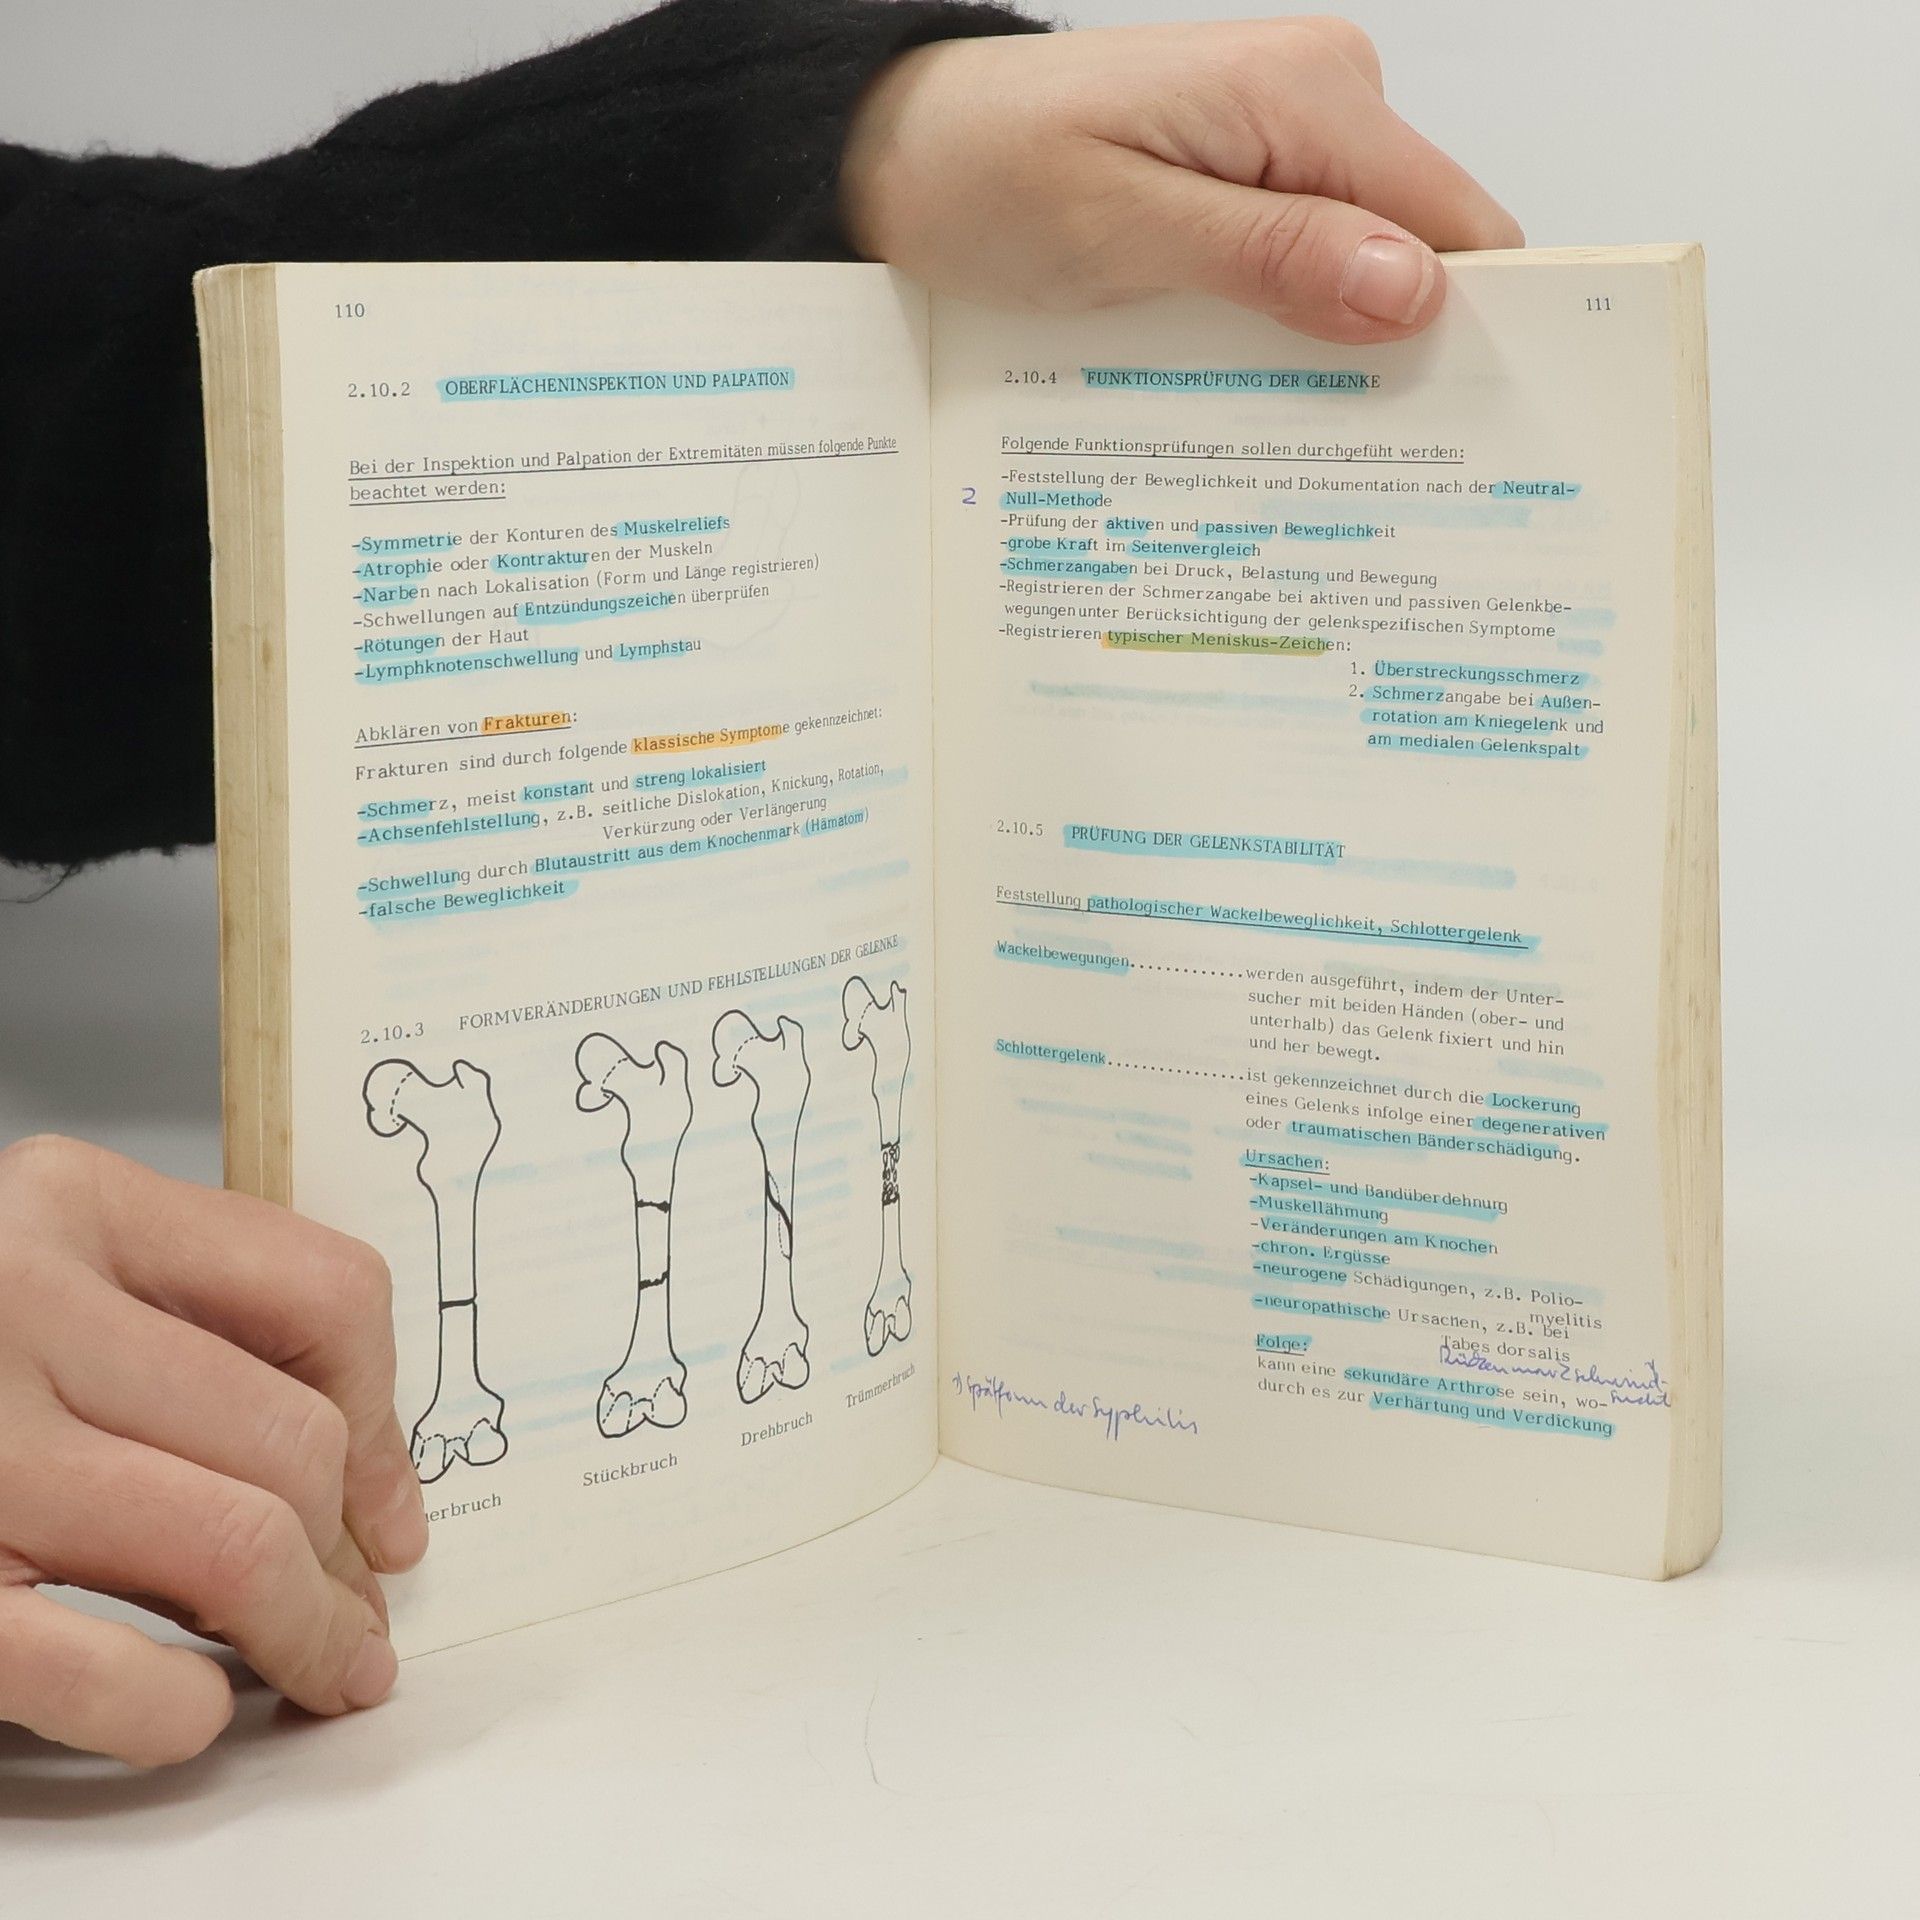 110
2.10.2 OBERFLÄCHENINSPEKTION UND PALPATION
Bei der Inspektion und Palpation der Extremitäten müssen folgende Punkte
beachtet werden:
-Symmetrie der Konturen des Muskelreliefs
-Atrophie oder Kontrakturen der Muskeln
-Narben nach Lokalisation (Form und Länge registrieren)
-Schwellungen auf Entzündungszeichen überprüfen
-Rötungen der Haut
-Lymphknotenschwellung und Lymphstau
Abklären von Frakturen:
Frakturen sind durch folgende klassische Symptome gekennzeichnet:
-Schmerz, meist konstant und streng lokalisiert
-Achsenfehlstellung, z.B. seitliche Dislokation, Knickung, Rotation,
Verkürzung oder Verlängerung
-Schwellung durch Blutaustritt aus dem Knochenmark (Hämatom)
-falsche Beweglichkeit
2.10.3 FORMVERÄNDERUNGEN UND FEHLSTELLUNGEN DER GELENKE
erbruch
Stückbruch
Drehbruch
Trümmerbruch
111
2.10.4 FUNKTIONSPRÜFUNG DER GELENKE
Folgende Funktionsprüfungen sollen durchgefüht werden:
-Feststellung der Beweglichkeit und Dokumentation nach der Neutral-
2 Null-Methode
-Prüfung der aktiven und passiven Beweglichkeit
-grobe Kraft im Seitenvergleich
-Schmerzangaben bei Druck, Belastung und Bewegung
-Registrieren der Schmerzangabe bei aktiven und passiven Gelenkbe-
wegungen unter Berücksichtigung der gelenkspezifischen Symptome
-Registrieren typischer Meniskus-Zeichen:
1. Überstreckungsschmerz
2. Schmerzangabe bei Außen-
rotation am Kniegelenk und
am medialen Gelenkspalt
2.10.5 PRÜFUNG DER GELENKSTABILITÄT
Feststellung pathologischer Wackelbeweglichkeit, Schlottergelenk
Wackelbewegungen.............werden ausgeführt, indem der Unter-
sucher mit beiden Händen (ober- und
unterhalb) das Gelenk fixiert und hin
und her bewegt.
Schlottergelenk................ist gekennzeichnet durch die Lockerung
eines Gelenks infolge einer degenerativen
oder traumatischen Bänderschädigung.
Ursachen:
-Kapsel- und Bandüberdehnung
-Muskellähmung
-Veränderungen am Knochen
-chron. Ergüsse
-neurogene Schädigungen, z.B. Polio-
myelitis
-neuropathische Ursachen, z.B. bei
Tabes dorsalis
Rückenmarkschwind-
sucht
Folge:
kann eine sekundäre Arthrose sein, wo-
durch es zur Verhärtung und Verdickung
Spätform der Syphilis